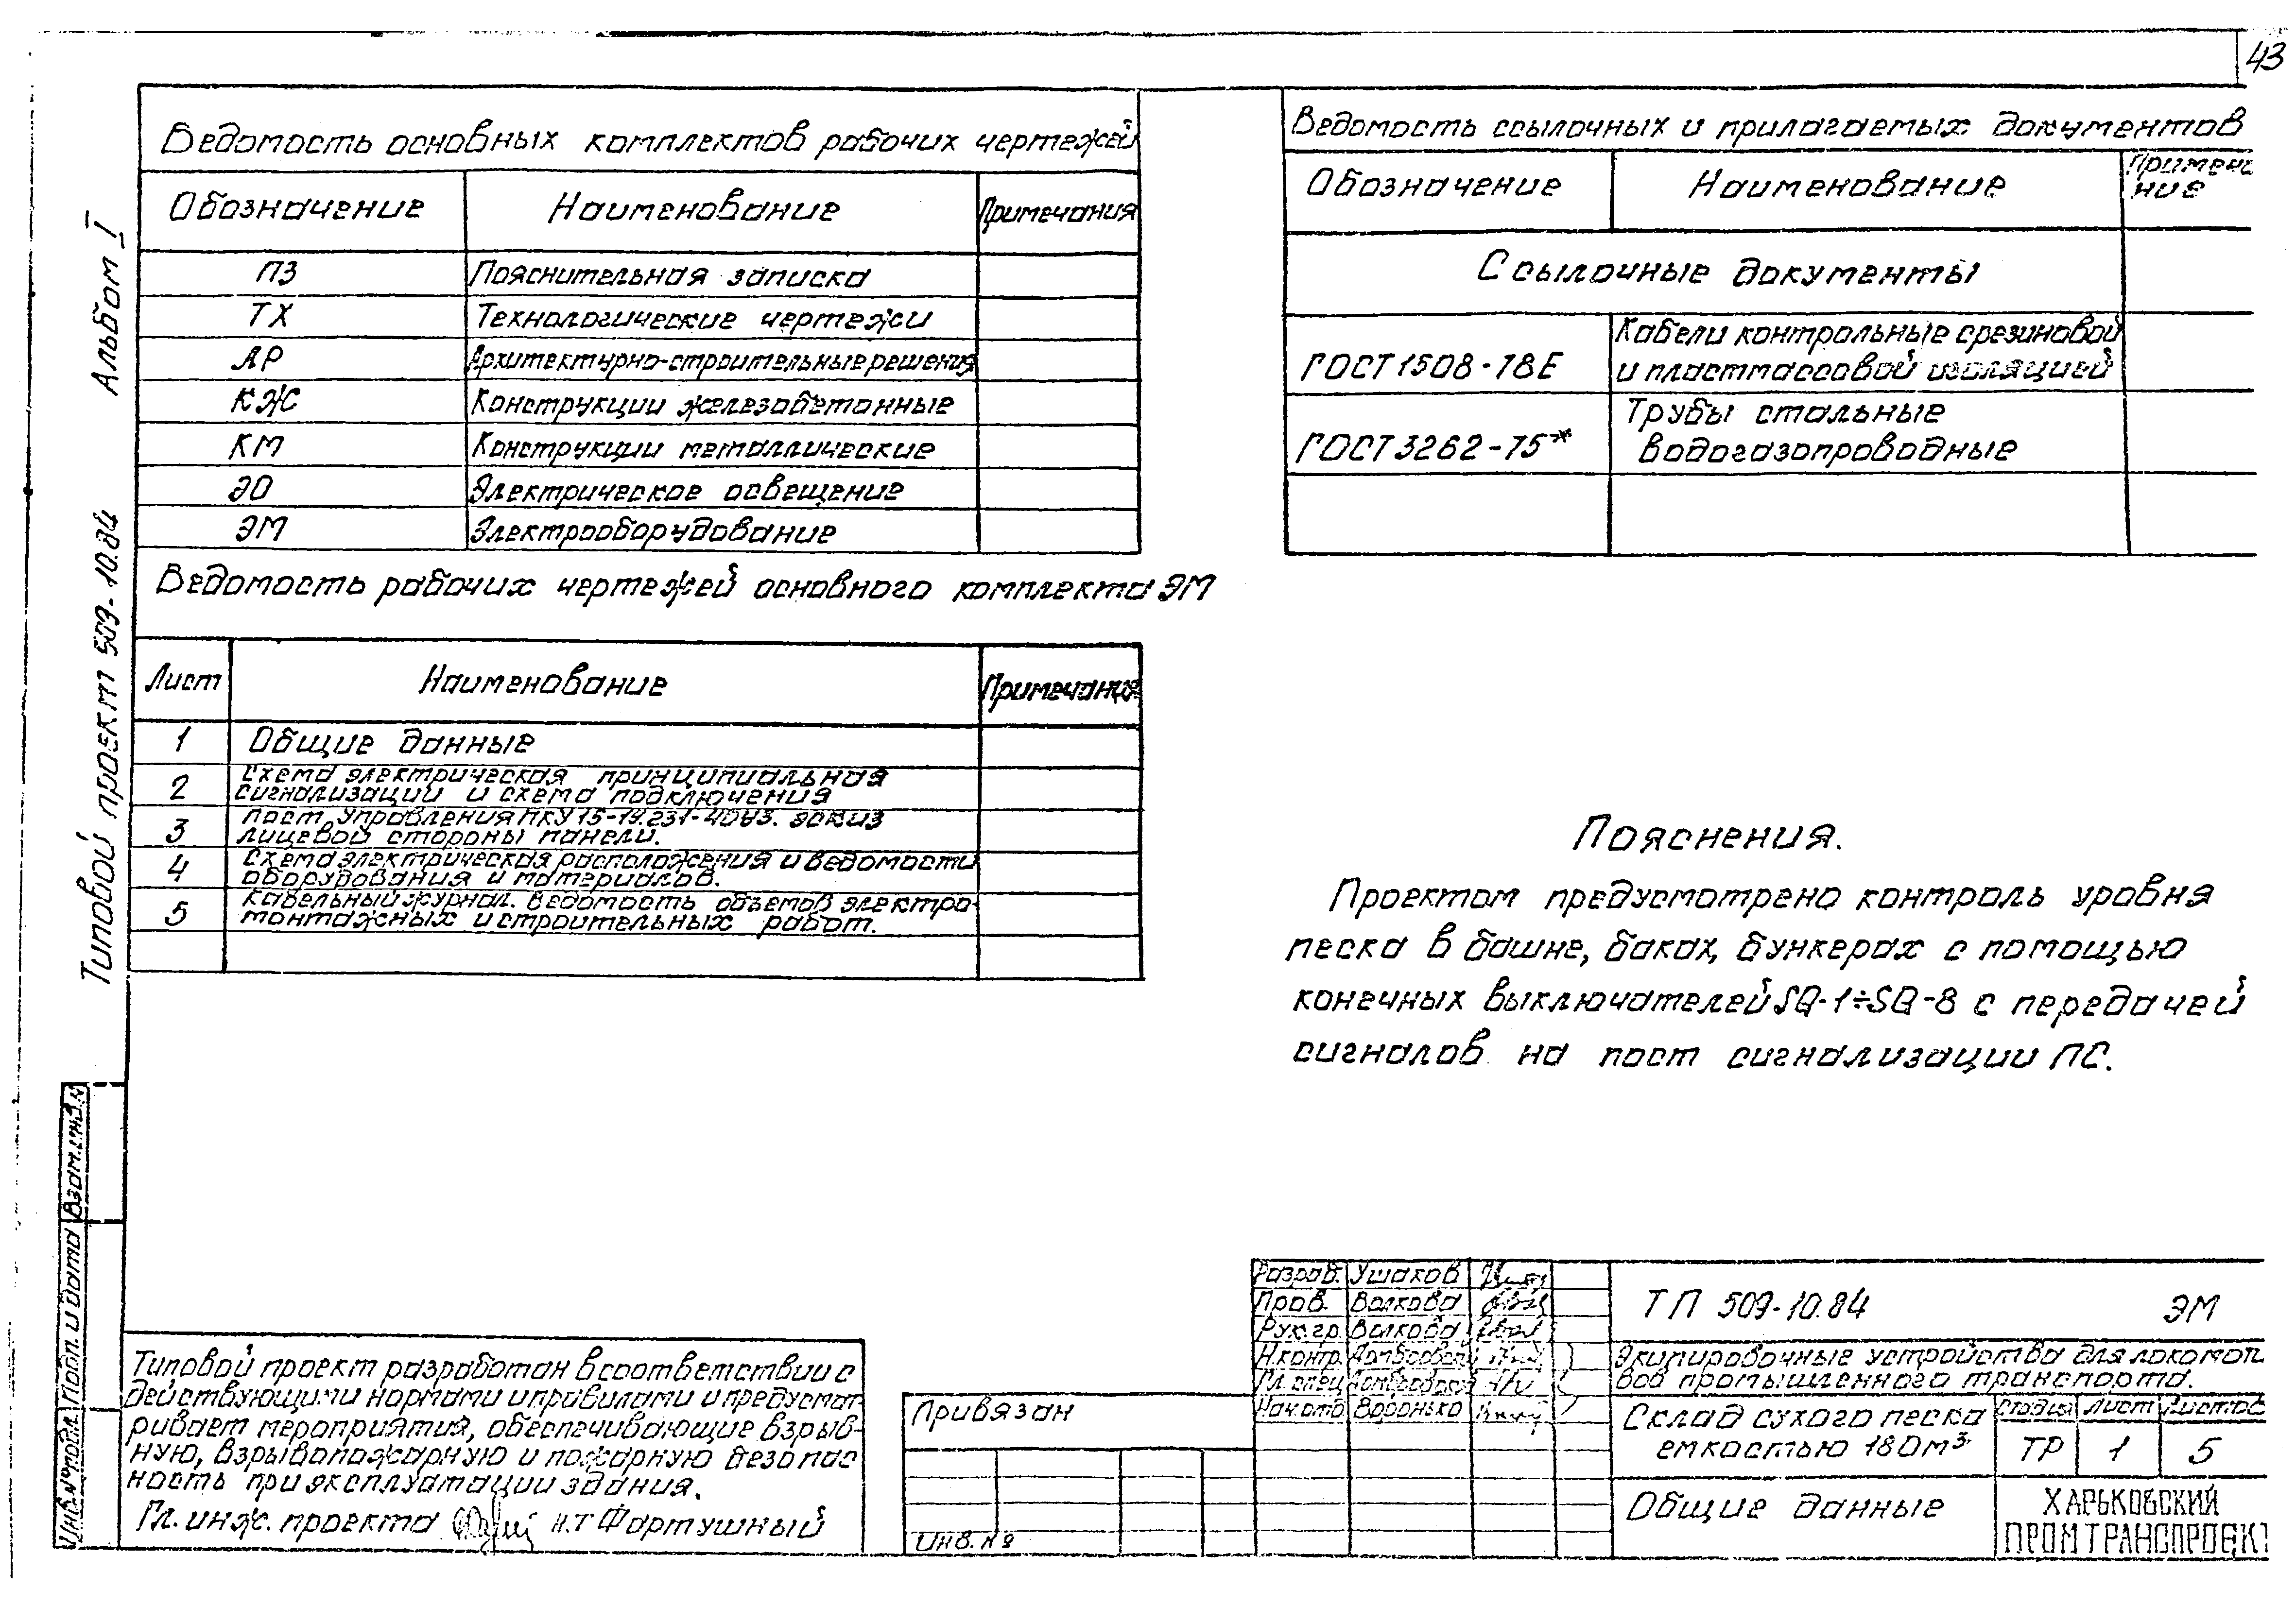 43
Альбом I
Типовой проект 509-10.84
Ведомость основных комплектов рабочих чертежей
Обозначение Наименование Примечания
ПЗ Пояснительная записка
ТХ Технологические чертежи
АР Архитектурно-строительные решения
КЖ Конструкции железобетонные
КМ Конструкции металлические
ЭО Электрическое освещение
ЭМ Электрооборудование
Ведомость рабочих чертежей основного комплекта ЭМ
Лист Наименование Примечание
1 Общие данные
2 Схема электрическая принципиальная
сигнализации и схема подключения
3 Пост управления ПКУ 15-19.231-40У3. Эскиз
лицевой стороны панели.
4 Схема электрическая расположения и ведомости
оборудования и материалов.
5 Кабельный журнал. Ведомость объемов электро-
монтажных и строительных работ.
Ведомость ссылочных и прилагаемых документов
Обозначение Наименование Примеча
ние
Ссылочные документы
ГОСТ 1508-78Е Кабели контрольные с резиновой
и пластмассовой изоляцией
ГОСТ 3262-75* Трубы стальные
водогазопроводные
Пояснения.
Проектом предусмотрено контроль уровня
песка в башне, баках, бункерах с помощью
конечных выключателей SQ-1÷SQ-8 с передачей
сигналов на пост сигнализации ПС.
Взам.инв.№
Подп. и дата
Инв.№ подл.
Типовой проект разработан в соответствии с
действующими нормами и правилами и предусмат-
ривает мероприятия, обеспечивающие взрыв-
ную, взрывопожарную и пожарную безопас
ность при эксплуатации здания.
Гл. инж. проекта Н.Т Фортушный
Привязан
Инв. №
Разраб. Ушаков
Пров. Волкова
Рук.гр. Волкова
Н.контр.
Гл.спец.
Нач.отд. Воронько
ТП 509-10.84 ЭМ
Экипировочные устройства для локомоти
вов промышленного транспорта.
Склад сухого песка
емкостью 180м³
Стадия Лист Листов
ТР 1 5
Общие данные
ХАРЬКОВСКИЙ
ПРОМТРАНСПРОЕКТ